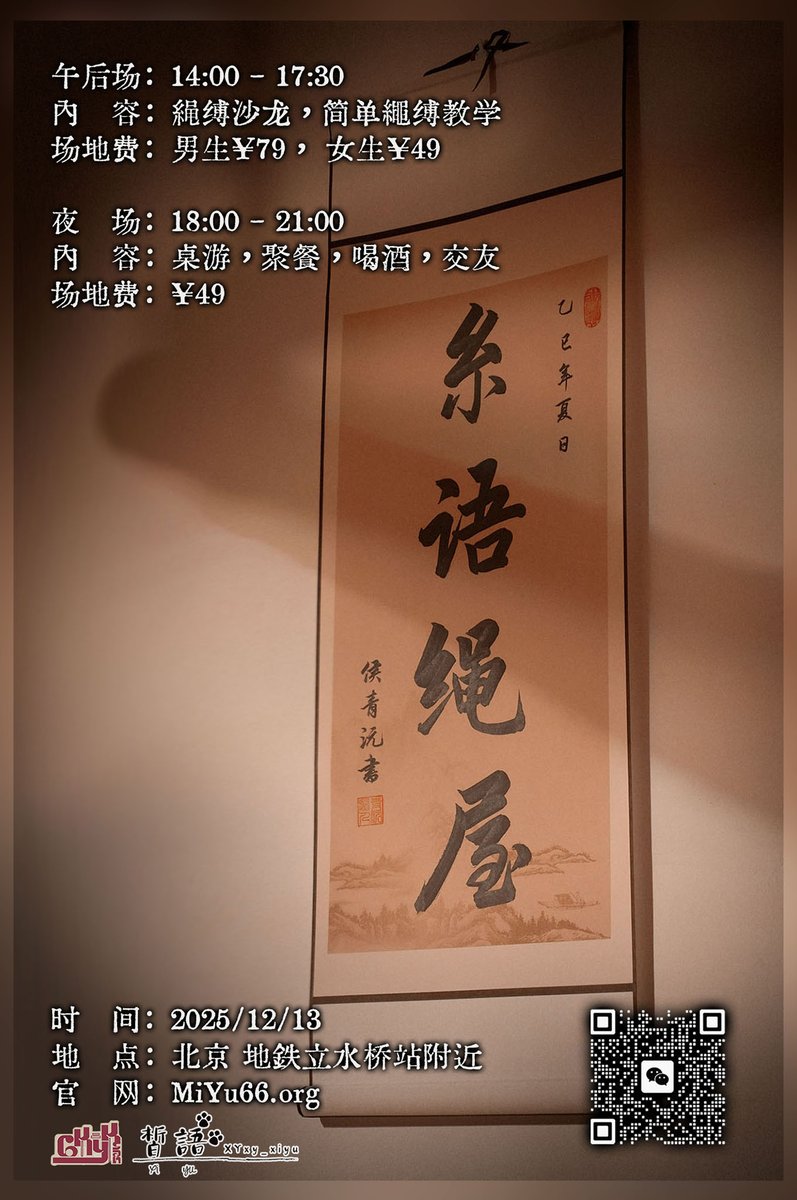 午后场：14:00 - 17:30
內　容：繩缚沙龙，简单繩缚教学
场地费：男生¥79， 女生¥49
夜　场：18:00 - 21:00
內　容：桌游，聚餐，喝酒，交友
场地费：¥49
乙巳年夏日
糸语绳屋
侯青沅书
时　间：2025/12/13
地　点：北京 地鉄立水桥站附近
官　网：MiYu66.org
皙語
XYxy_xiyu